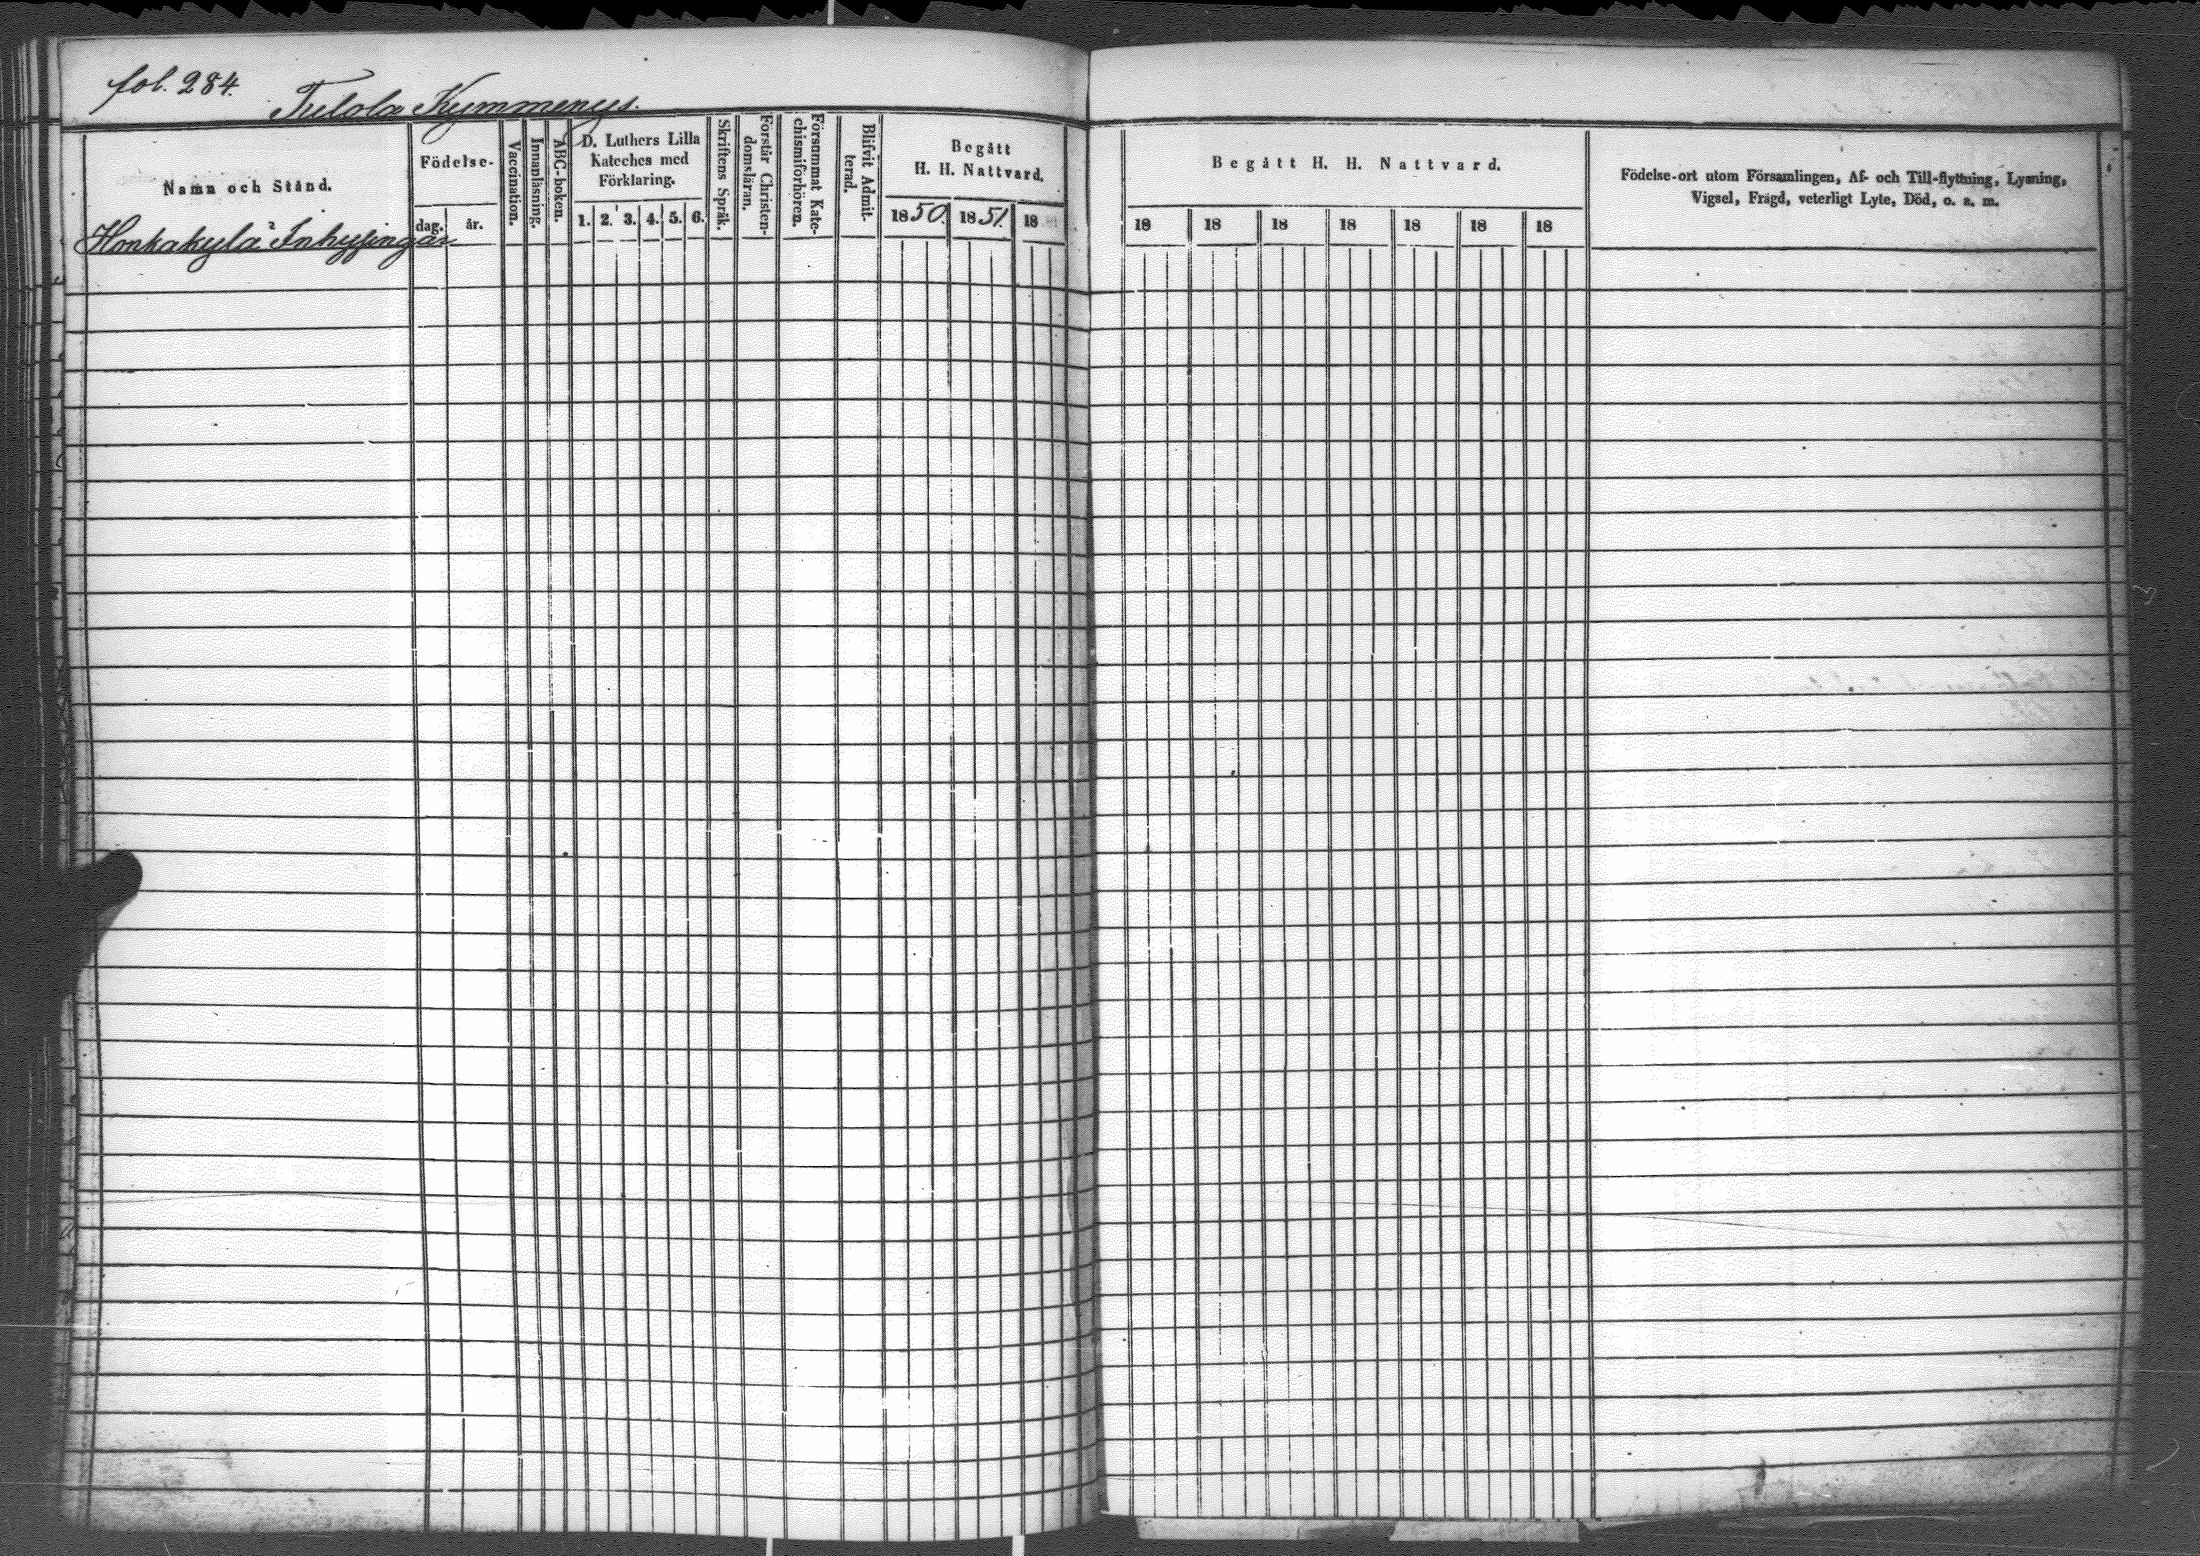 fol. 284.
Tulola Kymmenys.
Namn och Stånd.
Honkakyla Inhysingar
Födelse-
dag. år.
Vaccination.
Innanläsning.
ABC-boken.
D. Luthers Lilla
Kateches med
Förklaring.
1. 2. 3. 4. 5. 6.
Skriftens Språk.
Förstår Christen-
domsläran.
Försummat Kate-
chismiförhören.
Blifvit Admit-
terad.
Begått
H. H. Nattvard.
1850. 1851. 18
Begått H. H. Nattvard.
18 18 18 18 18 18 18
Födelse-ort utom Församlingen, Af- och Till-flyttning, Lysning,
Vigsel, Frägd, veterligt Lyte, Död, o. s. m.